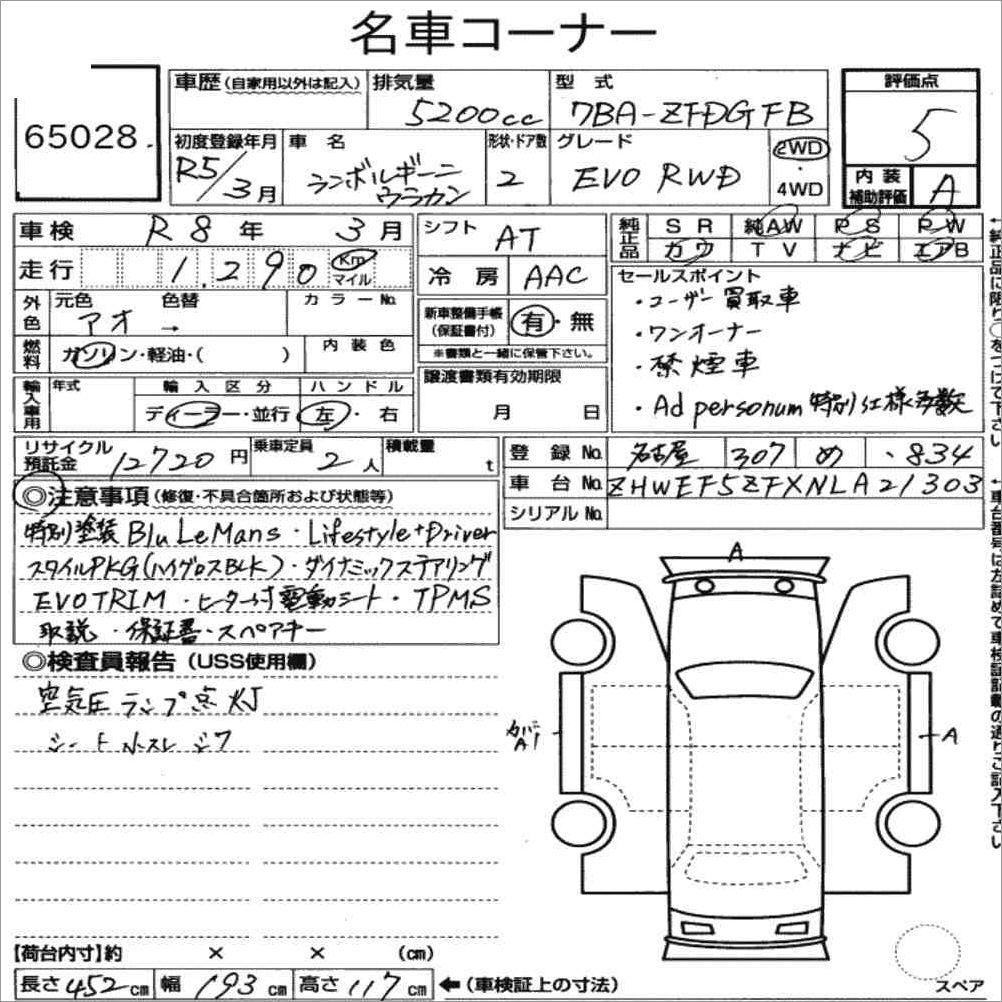 名車コーナー
65028
車歴 (自家用以外は記入)
排気量
5200cc
型 式
7BA-ZFDGFB
評価点
5
初度登録年月
R5/3月
車 名
ランボルギーニ
ウラカン
形状・ドア数
2
グレード
EVO RWD
2WD
・
4WD
内 装
補助評価
A
車検 R8年 3月
走行 1,290 Km
マイル
シフト AT
冷 房 AAC
純正品
S R 純AW P S P W
カワ T V ナビ エアB
外色
元色 色替
アオ →
カラーNo.
燃料
ガソリン・軽油・( )
内 装 色
新車整備手帳
(保証書付)
有・無
※書類と一緒に保管下さい。
セールスポイント
・ユーザー買取車
・ワンオーナー
・禁煙車
・Ad personum 特別仕様多数
輸入車用
年式
輸 入 区 分
ディーラー・並行
ハ ン ド ル
左・右
譲渡書類有効期限
月 日
リサイクル
預託金
12720円
乗車定員
2人
積載量
t
登 録 No. 名古屋 307 め ・834
車 台 No. ZHWEF5ZFXNLA21303
シリアル No.
◎注意事項 (修復・不具合箇所および状態等)
特別塗装 Blu Le Mans・Lifestyle+Driver
スタイルPKG(ハイグロスBLK)・ダイナミックステアリング
EVO TRIM・ヒーター付電動シート・TPMS
取説・保証書・スペアキー
◎検査員報告 (USS使用欄)
空気圧ランプ点灯
シート小スレ シワ
A
カバー
A
A
スペア
【荷台内寸】約 × × (cm)
長さ 452 cm 幅 193 cm 高さ 117 cm
←(車検証上の寸法)